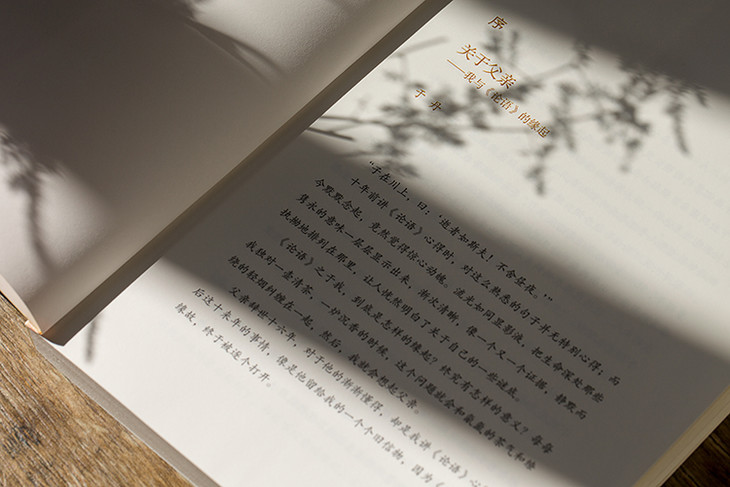 序
关于父亲
——我与《论语》的缘起
于丹
“子在川上，曰：‘逝者如斯夫！不舍昼夜。’”
十年前讲《论语》心得时，对这么熟悉的句子并无特别心得；而
今默默念起，竟然觉得惊心动魄。流光如同显影液，把生命深处那些
隽永的意味一层层显示出来，渐次清晰，像一个又一个证据，静默而
执拗地排列在那里，让人恍然明白了关于自己的一些谜底。
《论语》之于我，到底是怎样的缘起？终究有怎样的意义？每每
我独对一壶清茶，一炉沉香的时候，这个问题就会和氤氲的茶气和缭
绕的轻烟纠缠在一起，然后，我就会想起父亲。
父亲辞世十六年，对于他的渐渐懂得，却是我讲《论语》心得
后这十来年的事情。像是他留给我的一个个旧信物，因为《
缘故，终于被逐个打开。